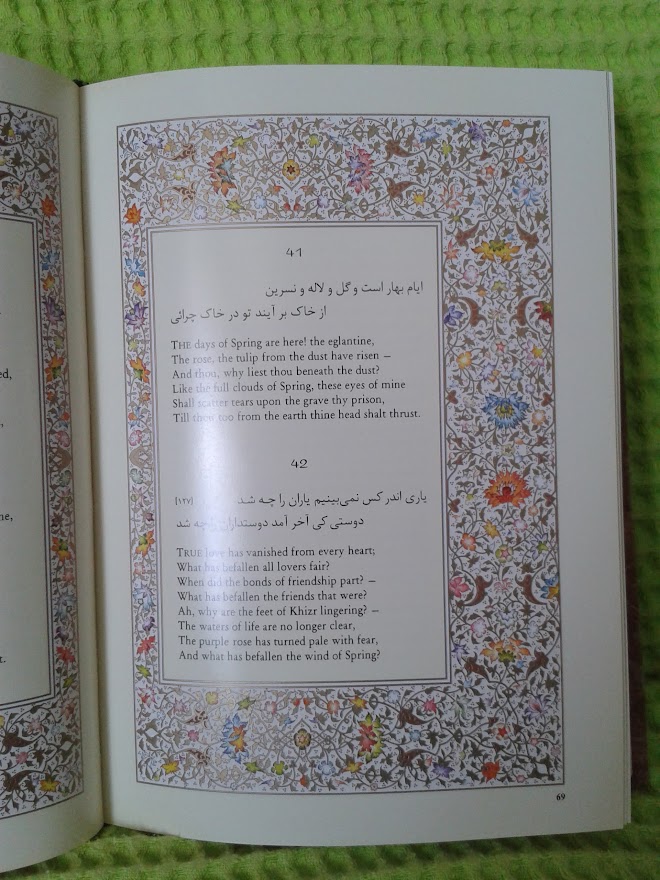 ed,
,
ne,
t.
41
ایام بهار است و گل و لاله و نسرین
از خاک بر آیند تو در خاک چرائی
THE days of Spring are here! the eglantine,
The rose, the tulip from the dust have risen —
And thou, why liest thou beneath the dust?
Like the full clouds of Spring, these eyes of mine
Shall scatter tears upon the grave thy prison,
Till thou too from the earth thine head shalt thrust.
42
یاری اندر کس نمی‌بینیم یاران را چه شد [۱۲۷]
دوستی کی آخر آمد دوستداران را چه شد
TRUE love has vanished from every heart;
What has befallen all lovers fair?
When did the bonds of friendship part? —
What has befallen the friends that were?
Ah, why are the feet of Khizr lingering? —
The waters of life are no longer clear,
The purple rose has turned pale with fear,
And what has befallen the wind of Spring?
69